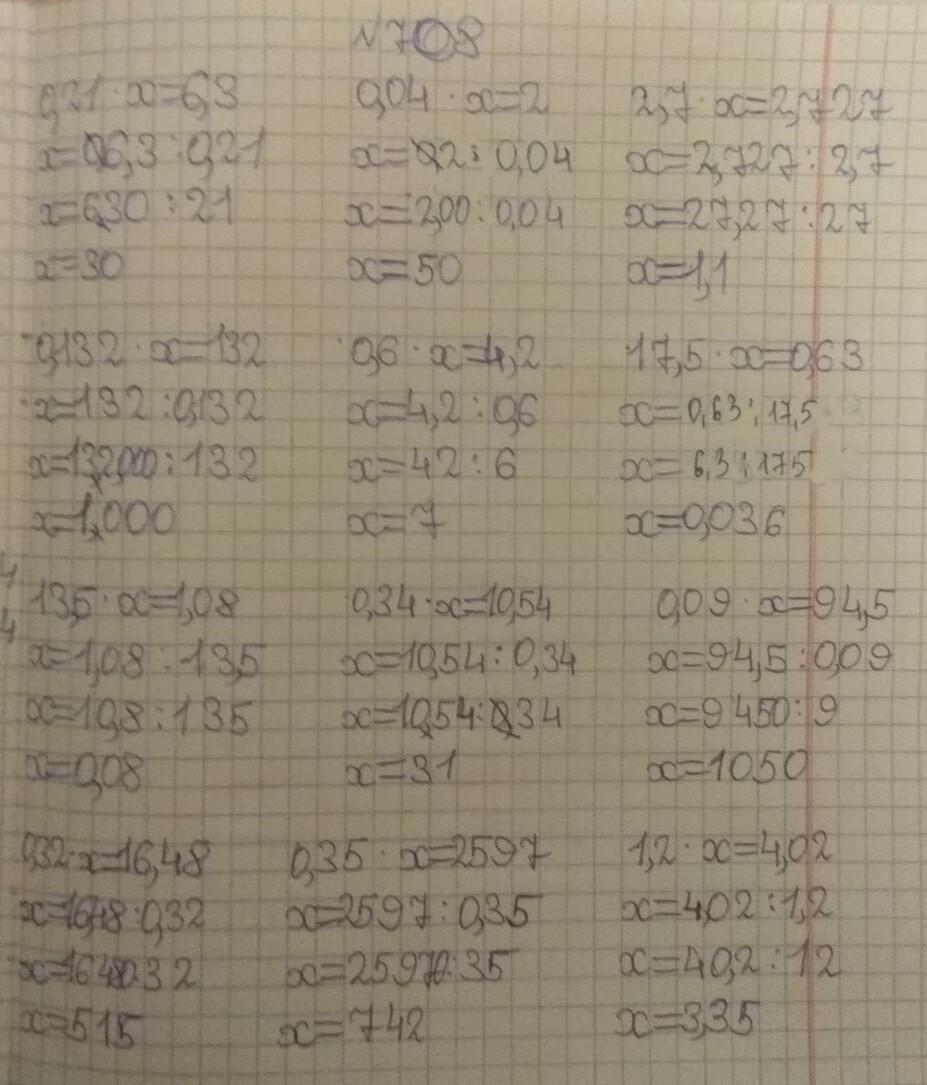 №708
0,21 · x=6,3
x=6,3 : 0,21
x=630 : 21
x=30
0,04 · x=2
x=2 : 0,04
x=2,00 : 0,04
x=50
2,7 · x=2,727
x=2,727 : 2,7
x=27,27 : 27
x=1,1
0,132 · x=132
x=132 : 0,132
x=132,000 : 132
x=1,000
0,6 · x=4,2
x=4,2 : 0,6
x=42 : 6
x=7
17,5 · x=0,63
x=0,63 : 17,5
x=6,3 : 175
x=0,036
13,5 · x=1,08
x=1,08 : 13,5
x=10,8 : 135
x=0,08
0,34 · x=10,54
x=10,54 : 0,34
x=10,54 : 0,34
x=31
0,09 · x=94,5
x=94,5 : 0,09
x=9450 : 9
x=1050
0,32 · x=16,48
x=16,48 : 0,32
x=1648 : 32
x=515
0,35 · x=2597
x=2597 : 0,35
x=25970 : 35
x=742
1,2 · x=4,02
x=4,02 : 1,2
x=40,2 : 12
x=3,35